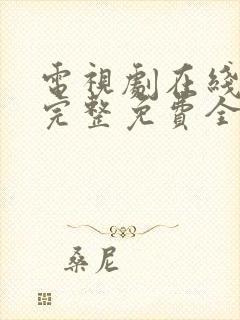 電視劇在綫
完整免費全
桑尼